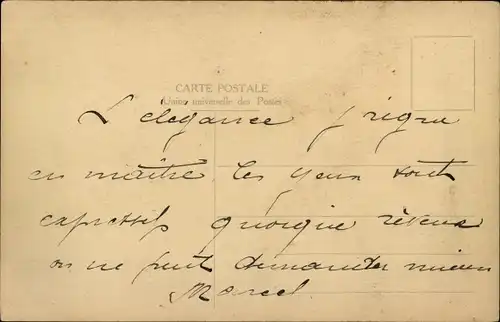 CARTE POSTALE
Union universelle des Postes
L'elegance
en maître les yeux sont
expressifs quoique rêveur
on ne peut demander mieux
Marcel